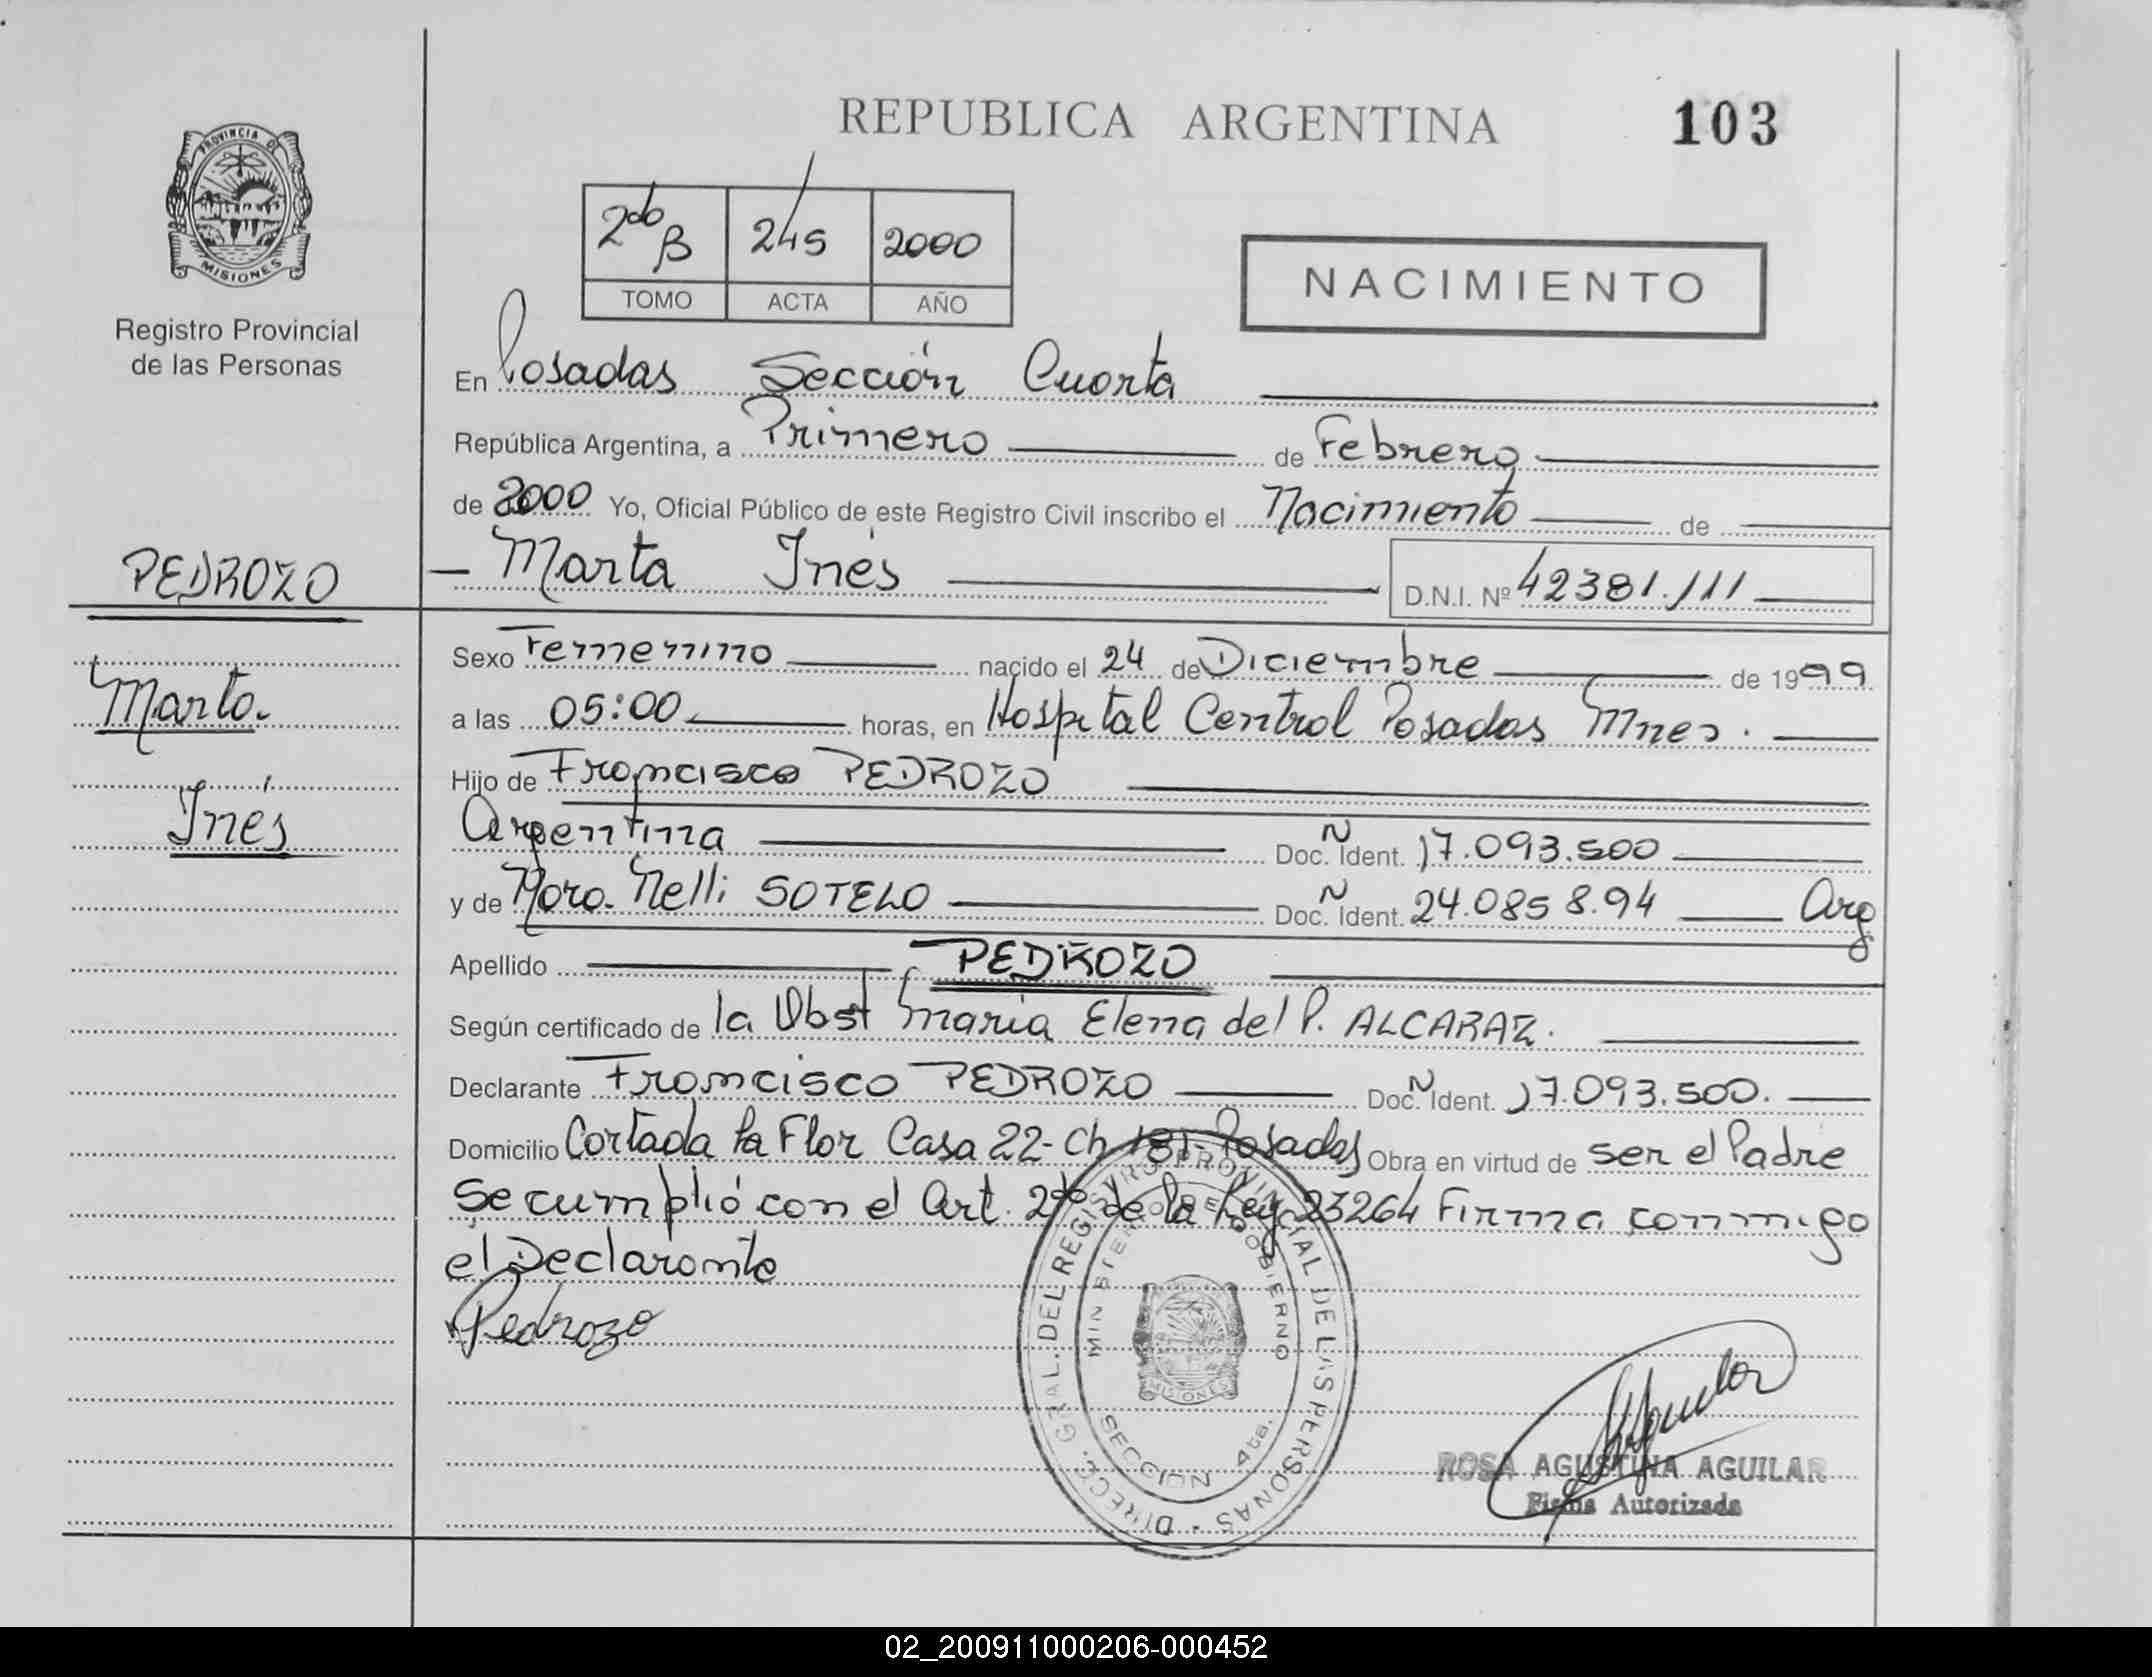 REPUBLICA ARGENTINA
103
PROVINCIA DE
MISIONES
Registro Provincial
de las Personas
2do B 245 2000
TOMO ACTA AÑO
NACIMIENTO
En Posadas Sección Cuarta
República Argentina, a Primero de Febrero
de 2000 Yo, Oficial Público de este Registro Civil inscribo el Nacimiento de
PEDROZO
Marta Inés D.N.I. Nº 42381.111
Sexo Femenino nacido el 24 de Diciembre de 1999
Marta
a las 05:00 horas, en Hospital Central Posadas Mnes.
Hijo de Francisco PEDROZO
Inés
Argentina Doc. N Ident. 17.093.500
y de Nelli SOTELO Doc. N Ident. 24.085 8.94 Arg
Apellido PEDROZO
Según certificado de la Obst Maria Elena del P. ALCARAZ.
Declarante Francisco PEDROZO Doc. N Ident. 17.093.500.
Domicilio Cortada la Flor Casa 22- Ch 181- Posadas Obra en virtud de ser el Padre
Se cumplió con el Art. 2do de la Ley 23264 Firma conmigo
el Declarante
Pedrozo
DIRECC. GRAL. DEL REGISTRO PROVINCIAL DE LAS PERSONAS
GOBIERNO
MISIONES
SECCION 4ta.
Aguilar
ROSA AGUSTINA AGUILAR
Firma Autorizada
02_200911000206-000452